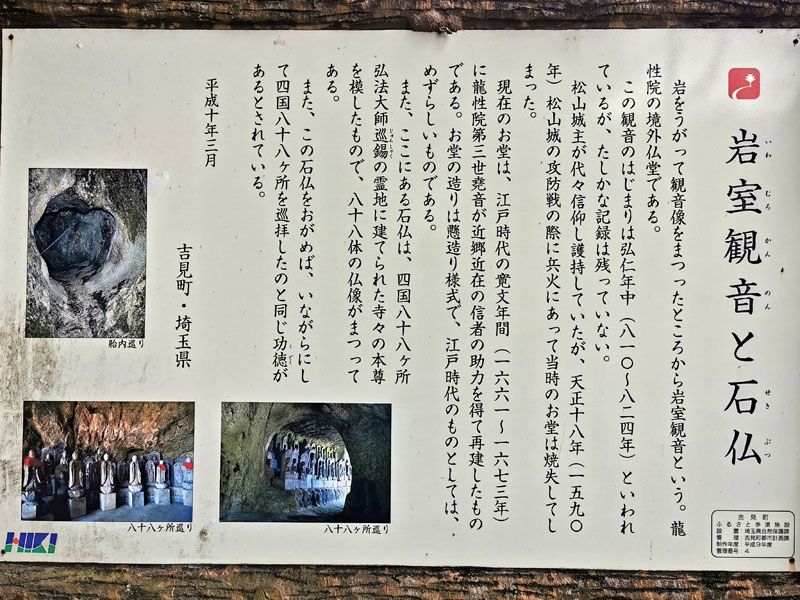 岩室観音と石仏
いわ むろ かん のん せき ぶつ
岩をうがって観音像をまつったところから岩室観音という。龍
性院の境外仏堂である。
この観音のはじまりは弘仁年中（八一〇～八二四年）といわれ
ているが、たしかな記録は残っていない。
松山城主が代々信仰し護持していたが、天正十八年（一五九〇
年）松山城の攻防戦の際に兵火にあって当時のお堂は焼失してし
まった。
現在のお堂は、江戸時代の寛文年間（一六六一～一六七三年）
に龍性院第三世堯音が近郷近在の信者の助力を得て再建したもの
である。お堂の造りは懸造り様式で、江戸時代のものとしては、
めずらしいものである。
また、ここにある石仏は、四国八十八ヶ所
弘法大師巡錫の霊地に建てられた寺々の本尊
を模したもので、八十八体の仏像がまつって
ある。
また、この石仏をおがめば、いながらにし
て四国八十八ヶ所を巡拝したのと同じ功徳が
あるとされている。
平成十年三月
吉見町・埼玉県
胎内巡り
八十八ヶ所巡り
八十八ヶ所巡り
HIKI
吉見町
ふるさと歩道施設
設置：埼玉県自然保護課
管理：吉見町都市計画課
制作年度：平成9年度
管理番号：4